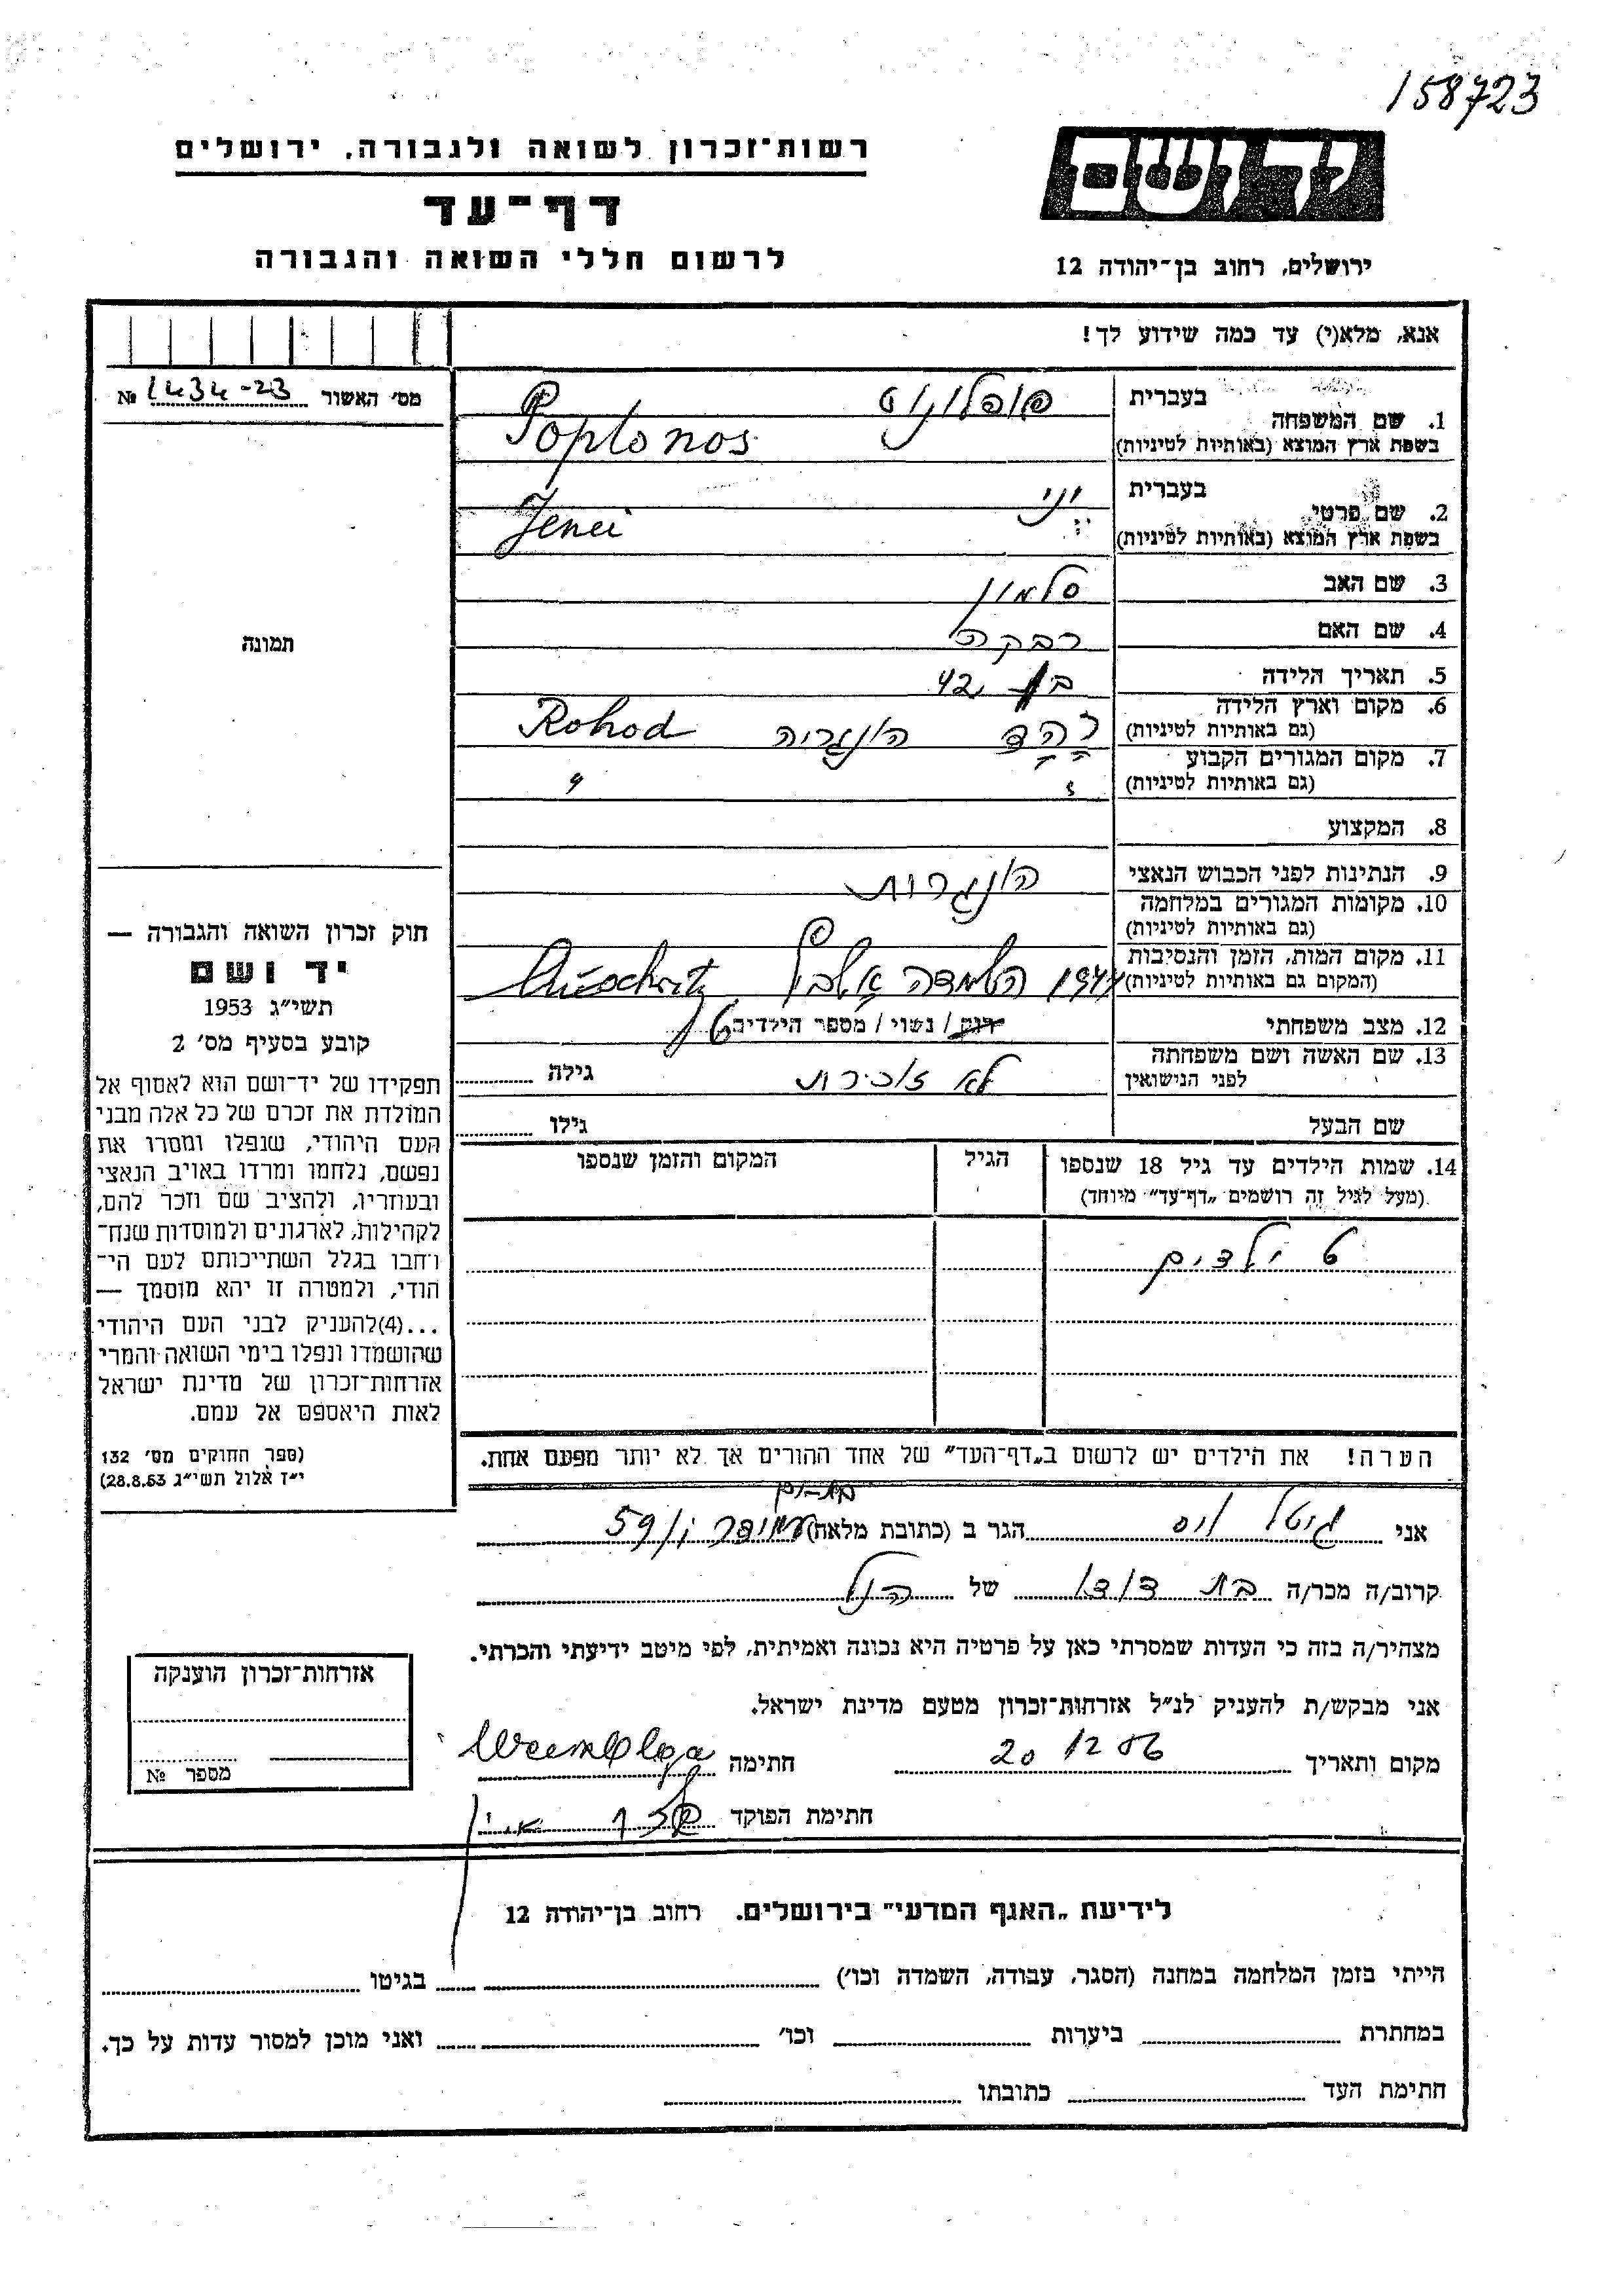 158723
יד ושם
רשות־זכרון לשואה ולגבורה, ירושלים
דף־עד
לרשום חללי השואה והגבורה
ירושלים, רחוב בן־יהודה 12
אנא, מלא(י) עד כמה שידוע לך!
מס׳ האשור 1434-23 №
תמונה
1. שם המשפחה בעברית
בשפת ארץ המוצא (באותיות לטיניות) Poplonos
2. שם פרטי בעברית יני
בשפת ארץ המוצא (באותיות לטיניות) Jenei
3. שם האב סלמון
4. שם האם רבקה
5. תאריך הלידה בן 42
6. מקום וארץ הלידה
(גם באותיות לטיניות) רהד הונגריה Rohod
7. מקום המגורים הקבוע
(גם באותיות לטיניות) " "
8. המקצוע
9. הנתינות לפני הכבוש הנאצי הונגרות
10. מקומות המגורים במלחמה
(גם באותיות לטיניות)
11. מקום המות, הזמן והנסיבות
(המקום גם באותיות לטיניות) 1944 השמדה Auschwitz
12. מצב משפחתי רווק / נשוי / מספר הילדים 6
13. שם האשה ושם משפחתה
לפני הנישואין לא זוכרות גילה
שם הבעל גילו
14. שמות הילדים עד גיל 18 שנספו הגיל המקום והזמן שנספו
(מעל לגיל זה רושמים „דף־עד״ מיוחד)
6 ילדים
הערה! את הילדים יש לרשום ב„דף־העד״ של אחד ההורים אך לא יותר מפעם אחת.
חוק זכרון השואה והגבורה —
יד ושם
תשי״ג 1953
קובע בסעיף מס׳ 2
תפקידו של יד־ושם הוא לאסוף אל
המולדת את זכרם של כל אלה מבני
העם היהודי, שנפלו ומסרו את
נפשם, נלחמו ומרדו באויב הנאצי
ובעוזריו, ולהציב שם וזכר להם,
לקהילות, לארגונים ולמוסדות שנח־
רחבו בגלל השתייכותם לעם הי־
הודי, ולמטרה זו יהא מוסמך —
...(4)להעניק לבני העם היהודי
שהושמדו ונפלו בימי השואה והמרי
אזרחות־זכרון של מדינת ישראל
לאות היאספם אל עמם.
(ספר החוקים מס׳ 132
י״ז אלול תשי״ג 28.8.53)
אני גיטל ויס הגר ב (כתובת מלאה) 59/
קרוב/ה מכר/ה בת דודו של הנ״ל
מצהיר/ה בזה כי העדות שמסרתי כאן על פרטיה היא נכונה ואמיתית, לפי מיטב ידיעתי והכרתי.
אני מבקש/ת להעניק לנ״ל אזרחות־זכרון מטעם מדינת ישראל.
מקום ותאריך 20 12 56 חתימה
חתימת הפוקד
אזרחות־זכרון הוענקה
מספר №
לידיעת „האגף המדעי״ בירושלים. רחוב בן־יהודה 12
הייתי בזמן המלחמה במחנה (הסגר, עבודה, השמדה וכו׳) בגיטו
במחתרת ביערות וכו׳ ואני מוכן למסור עדות על כך.
חתימת העד כתובתו